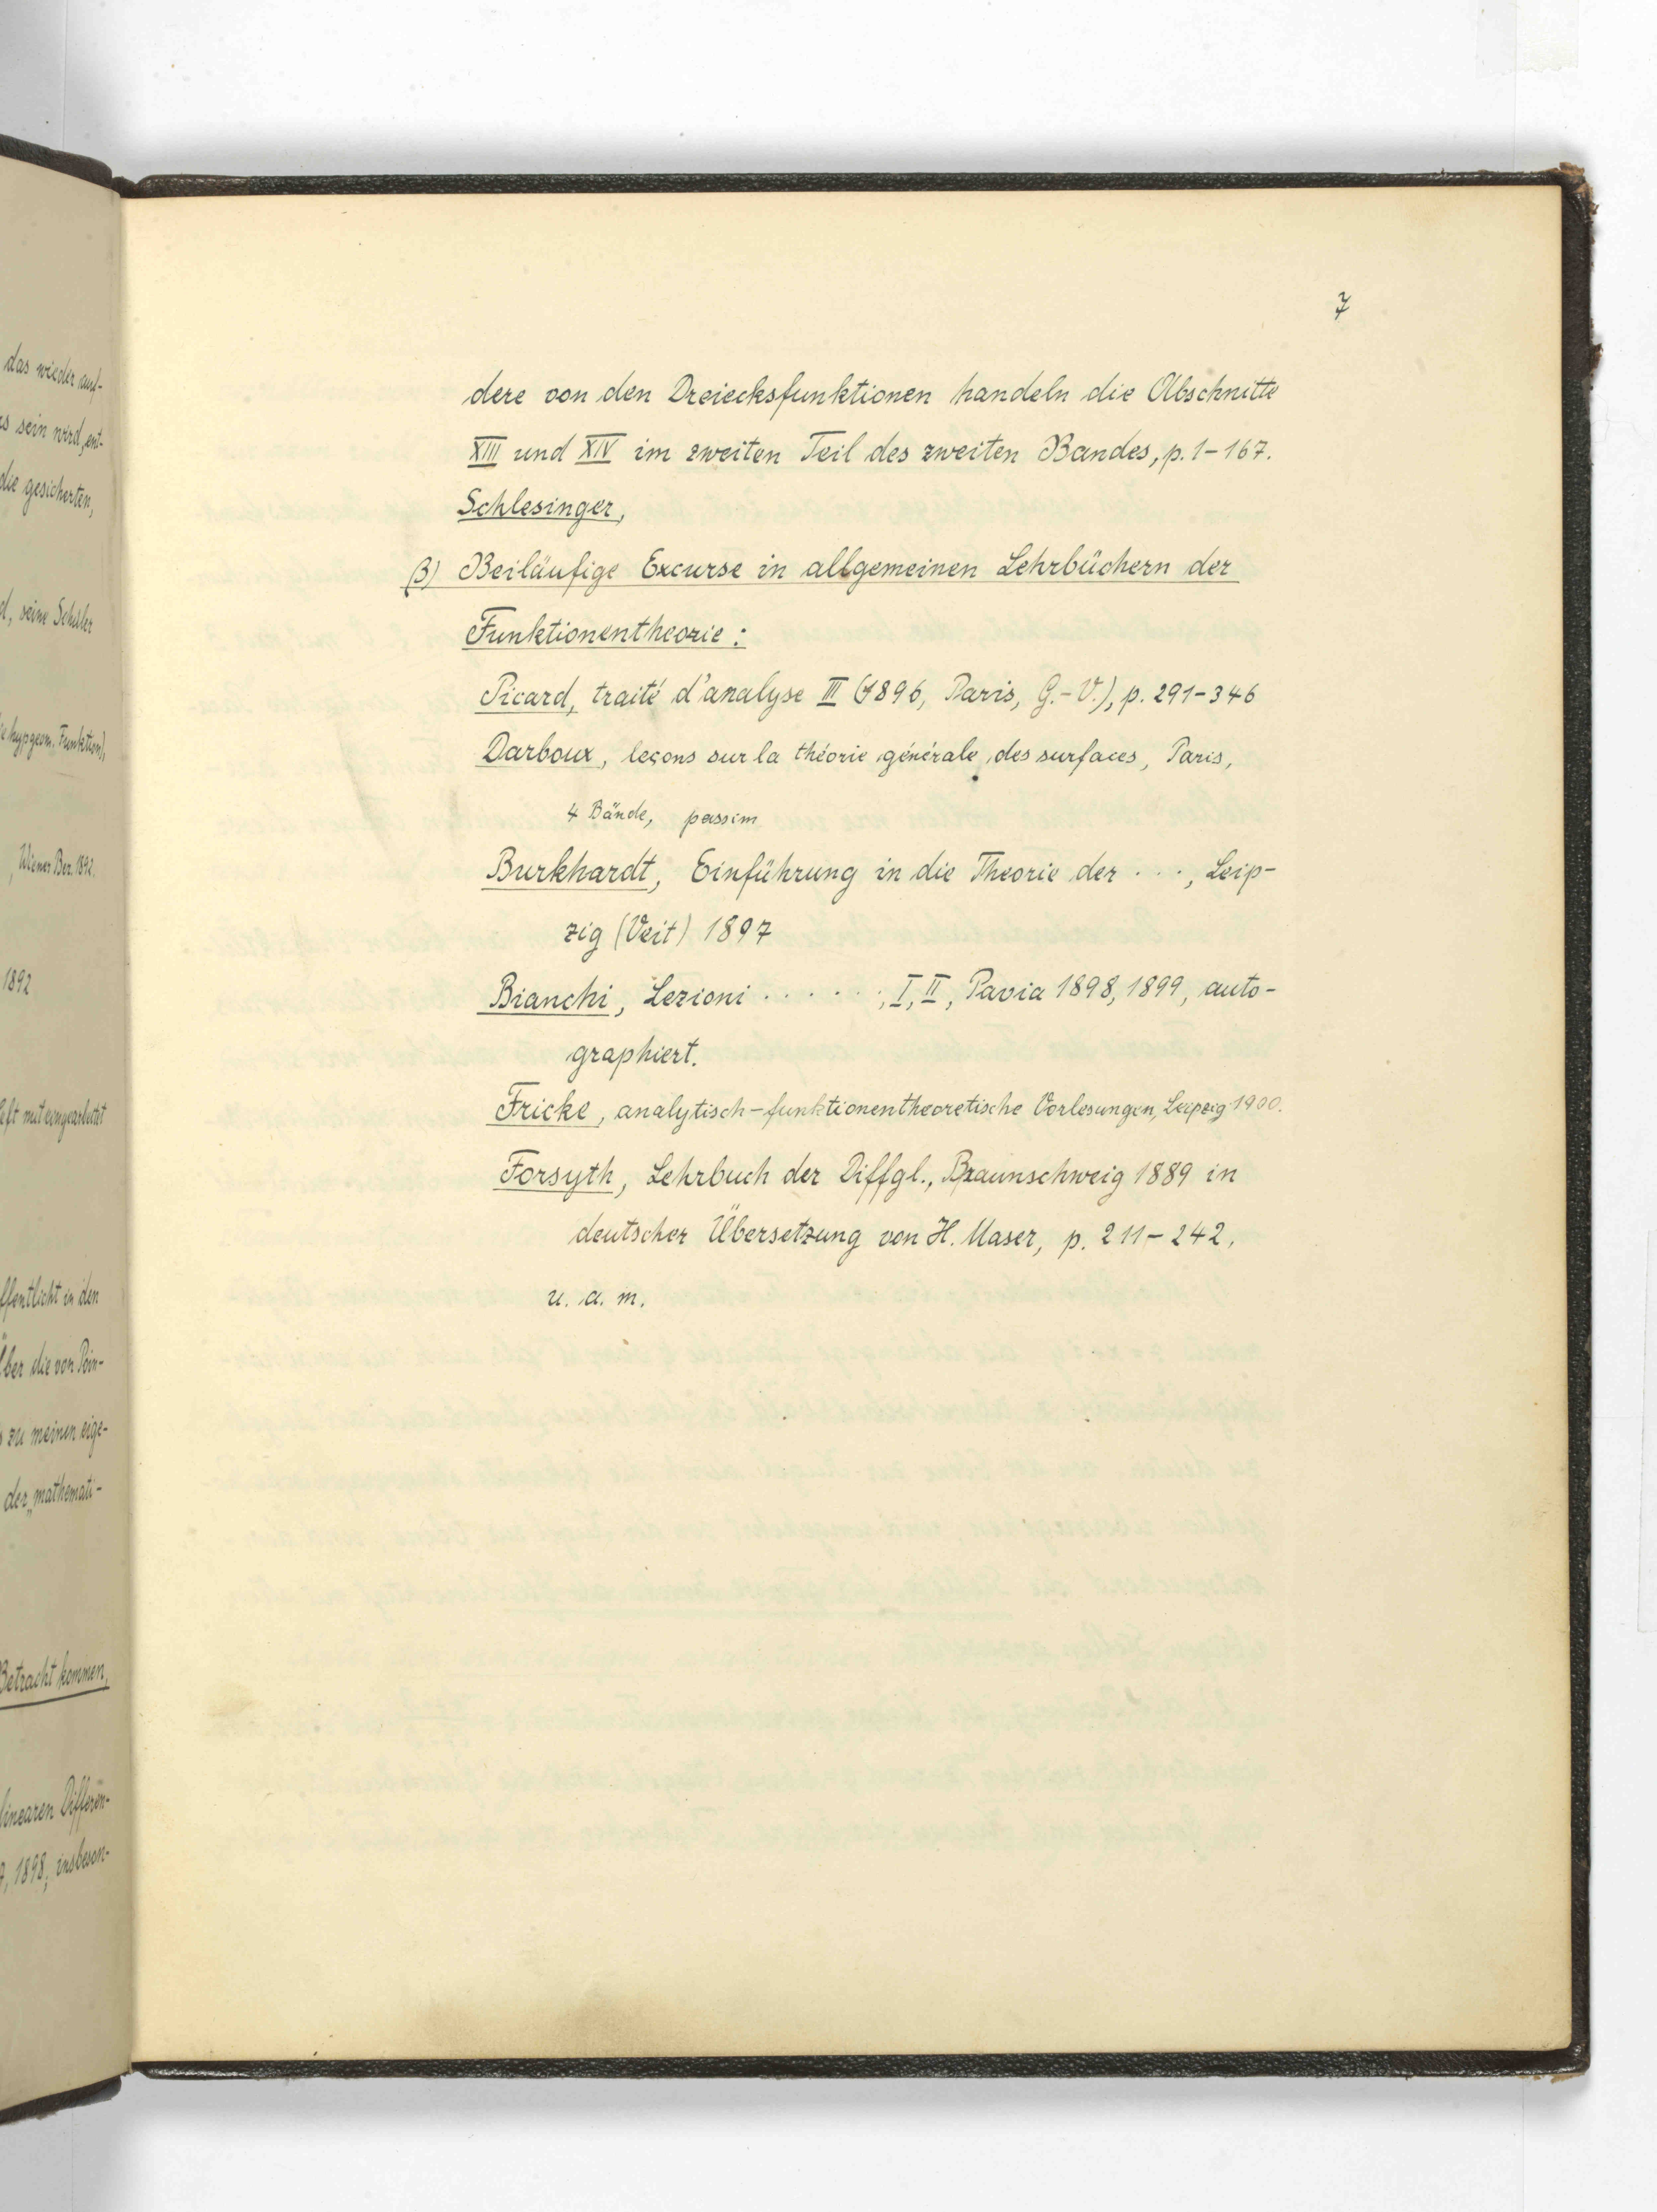 das wieder auf-
s sein wird, ent-
die gesicherten,
d, seine Schüler
hypgeom. Funktion),
, Wiener Ber. 1892.
1892
eft mit eingearbeitet
ffentlicht in den
ber die von Poin-
zu meinen eige-
der „mathemati-
Betracht kommen,
linearen Differen-
, 1898, insbeson-
7
dere von den Dreiecksfunktionen handeln die Abschnitte
XIII und XIV im zweiten Teil des zweiten Bandes, p. 1-167.
Schlesinger,
β) Beiläufige Excurse in allgemeinen Lehrbüchern der
Funktionentheorie:
Picard, traité d'analyse III (1896, Paris, G.-V.), p. 291-346
Darboux, leçons sur la théorie générale des surfaces, Paris,
4 Bände, passim
Burkhardt, Einführung in die Theorie der . . ., Leip-
zig (Veit) 1897
Bianchi, Lezioni . . . . . . , I, II, Pavia 1898, 1899, auto-
graphiert.
Fricke, analytisch-funktionentheoretische Vorlesungen, Leipzig 1900.
Forsyth, Lehrbuch der Diffgl., Braunschweig 1889 in
deutscher Übersetzung von H. Maser, p. 211-242,
u. a. m.